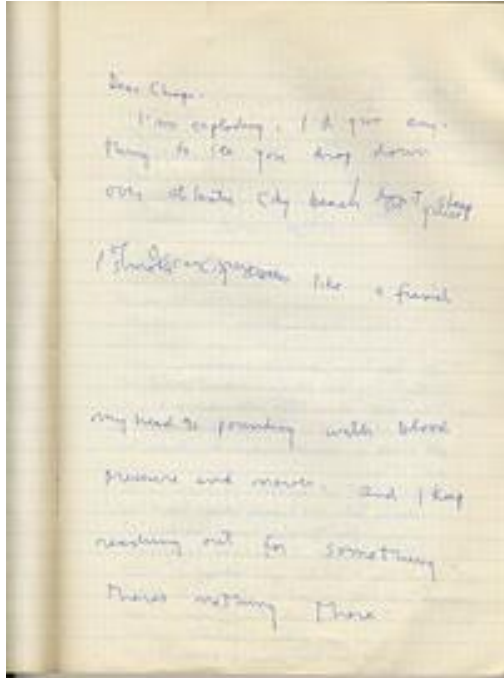 Dear Chaps.
I'm exploding. I'd give any-
thing to see you drop down
over Atlantic City beach
I smoke like a
my head is pounding with blood
pressure and movies. and I keep
reaching out for something
theres nothing there